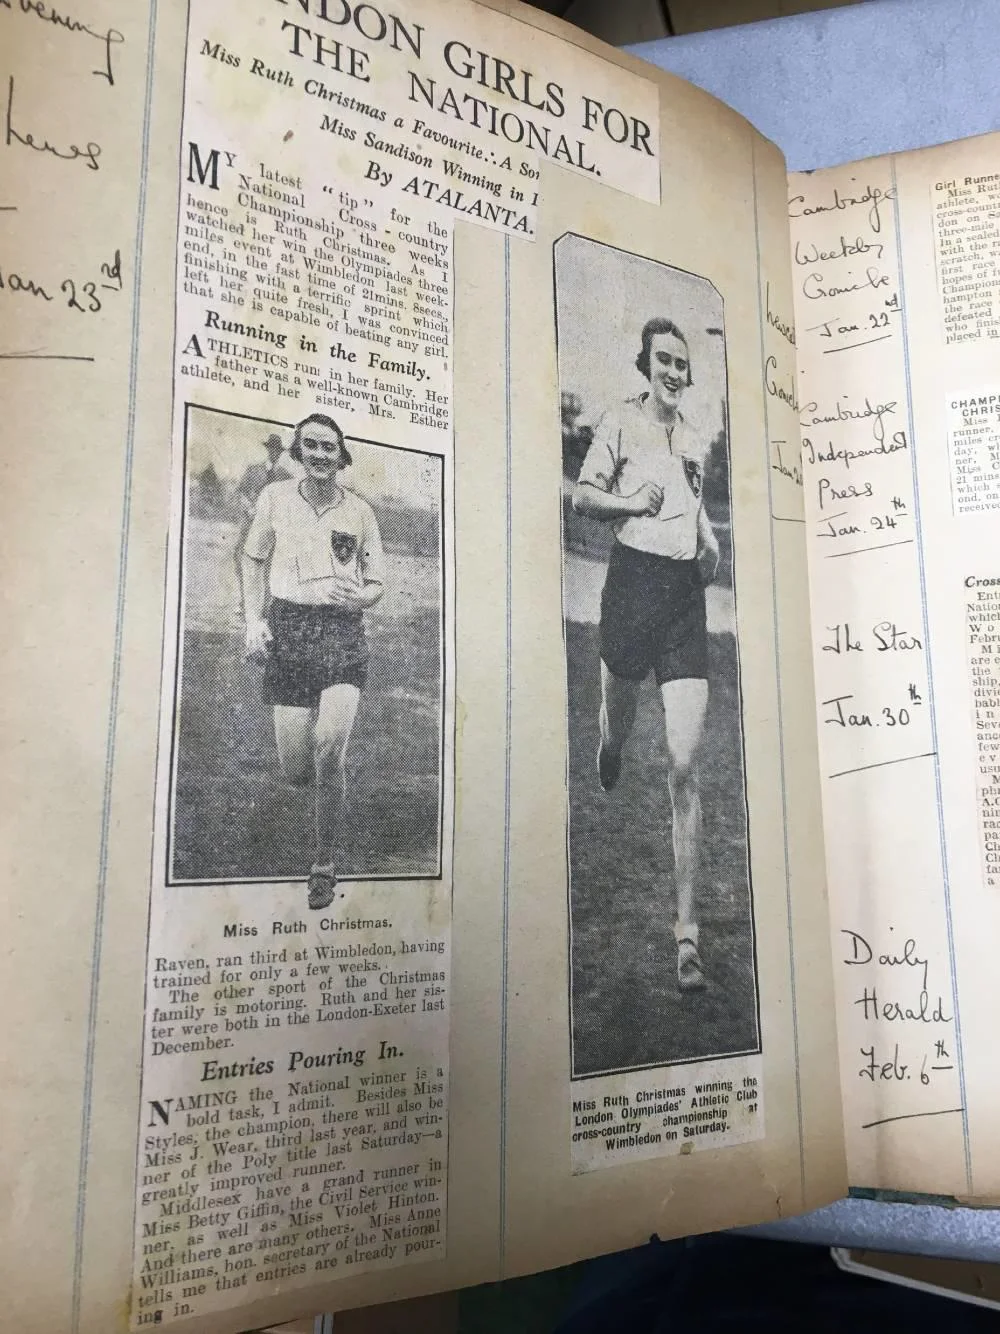 vening
Jan 23rd
NDON GIRLS FOR
THE NATIONAL.
Miss Ruth Christmas a Favourite∴ A
Miss Sandison Winning in
By ATALANTA.
MY latest "tip" for the
National Cross-country
Championship three weeks
hence is Ruth Christmas. As I
watched her win the Olympiades three
miles event at Wimbledon last week-
end, in the fast time of 21mins. 8secs.,
finishing with a terrific sprint which
left her quite fresh, I was convinced
that she is capable of beating any girl.
Running in the Family.
ATHLETICS run in her family. Her
father was a well-known Cambridge
athlete, and her sister, Mrs. Esther
Miss Ruth Christmas.
Raven, ran third at Wimbledon, having
trained for only a few weeks.
The other sport of the Christmas
family is motoring. Ruth and her sis-
ter were both in the London-Exeter last
December.
Entries Pouring In.
NAMING the National winner is a
bold task, I admit. Besides Miss
Styles, the champion, there will also be
Miss J. Wear, third last year, and win-
ner of the Poly title last Saturday—a
greatly improved runner.
Middlesex have a grand runner in
Miss Betty Giffin, the Civil Service win-
ner, as well as Miss Violet Hinton.
And there are many others. Miss Anne
Williams, hon. secretary of the National
tells me that entries are already pour-
ing in.
Miss Ruth Christmas winning the
London Olympiades' Athletic Club
cross-country championship at
Wimbledon on Saturday.
Cambridge
Weekly
Cronicle
Jan. 22nd
Cambridge
Independent
Press
Jan. 24th
The Star
Jan. 30th
Daily
Herald
Feb. 6th
Girl Runne
Miss Rut
athlete, w
cross-count
don on S
three-mile
In a sealed
with the r
scratch, wa
first race
hopes of
Champion
hampton
the race
defeated
who finis
placed in
CHAMP
CHRIS
Miss
runner,
miles cr
day, wh
ner, M
Miss C
21 mins
which s
ond, on
receive
Cross
Ent
Natio
which
Wo
Febru
Mi
are e
the
ship,
divi
babl
in
Sev
anc
few
ev
usu
M
phr
A.C
nin
rac
pa
Ch
Ch
fa
a